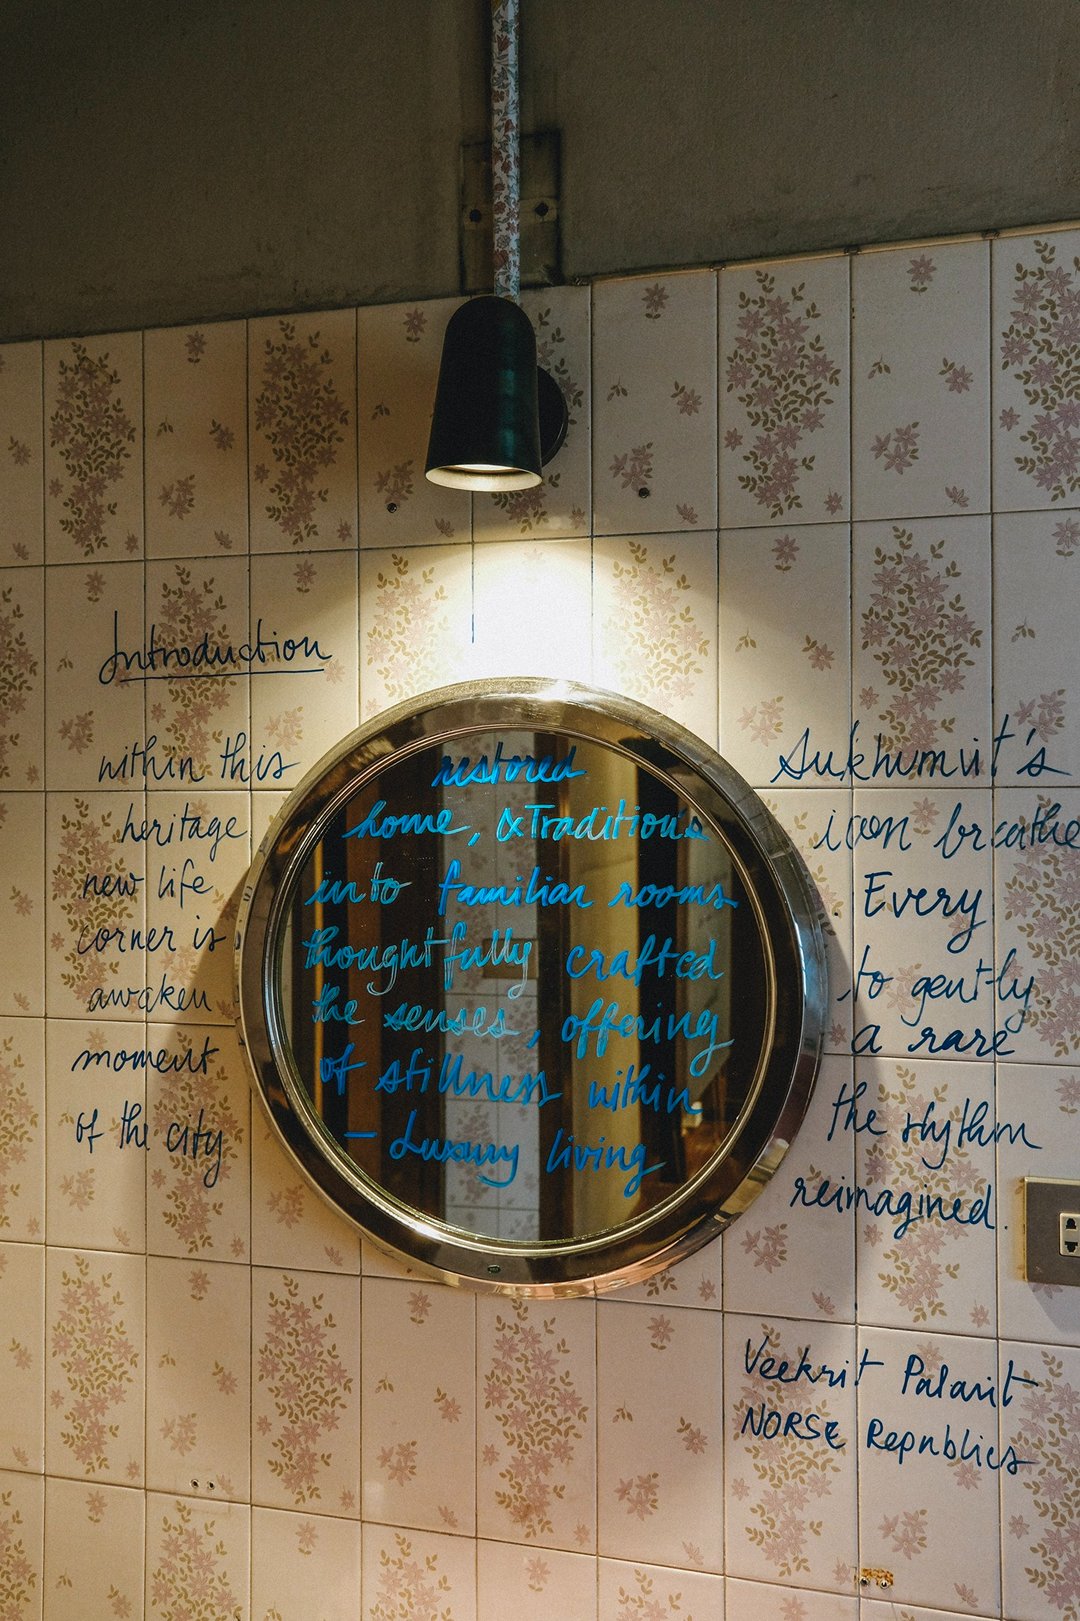 Introduction
within this restored Sukhumvit's
heritage home, &Tradition's icon breathe
new life into familiar rooms Every
corner is thoughtfully crafted to gently
awaken the senses, offering a rare
moment of stillness within the rhythm
of the city — Luxury living reimagined.
Veekrit Palarit
NORSE Republics